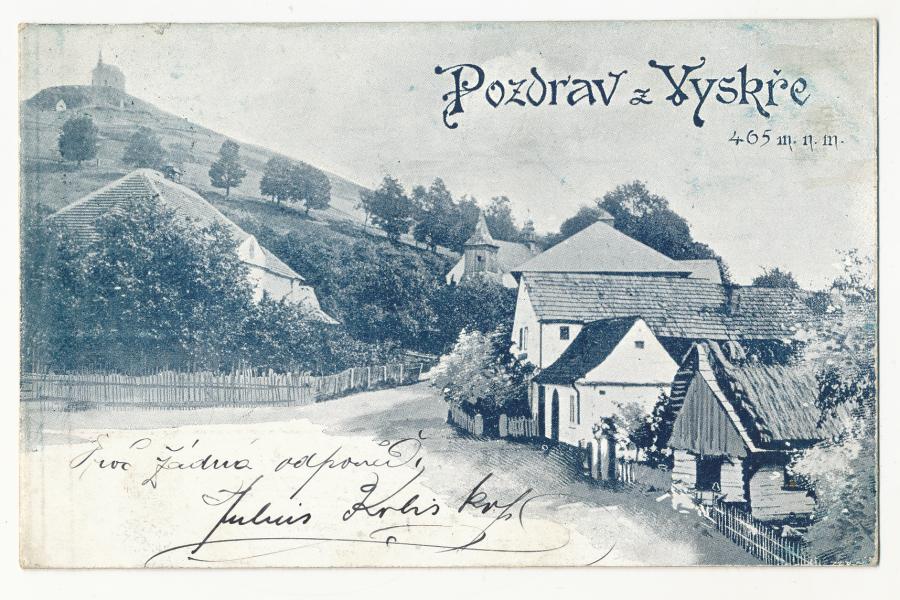 Pozdrav z Vyskře
465 m. n. m.
Proč žádná odpověď,
Julius